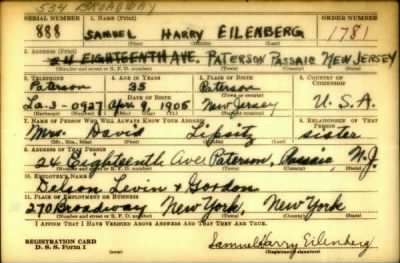 534 BROADWAY
SERIAL NUMBER 1. NAME (Print) ORDER NUMBER
888 SAMUEL HARRY EILENBERG 1781
(First) (Middle) (Last)
2. ADDRESS (Print)
24 EIGHTEENTH AVE. PATERSON PASSAIC NEW JERSEY
(Number and street or R. F. D. number) (Town) (County) (State)
3. TELEPHONE 4. AGE IN YEARS 5. PLACE OF BIRTH 6. COUNTRY OF CITIZENSHIP
Paterson 35 Paterson
DATE OF BIRTH
La. 3-0927 Apr. 9, 1905 New Jersey U.S.A.
(Exchange) (Number) (Mo.) (Day) (Yr.) (State or country)
7. NAME OF PERSON WHO WILL ALWAYS KNOW YOUR ADDRESS 8. RELATIONSHIP OF THAT PERSON
Mrs. David Lipsitz sister
(Mr., Mrs., Miss) (First) (Middle) (Last)
9. ADDRESS OF THAT PERSON
24 Eighteenth Ave. Paterson, Passaic, N.J.
(Number and street or R. F. D. number) (Town) (County) (State)
10. EMPLOYER'S NAME
Delson Levin & Gordon
11. PLACE OF EMPLOYMENT OR BUSINESS
270 Broadway New York, New York
(Number and street or R. F. D. number) (Town) (County) (State)
I AFFIRM THAT I HAVE VERIFIED ABOVE ANSWERS AND THAT THEY ARE TRUE.
REGISTRATION CARD
D. S. S. Form 1 Samuel Harry Eilenberg
(Registrant's signature)